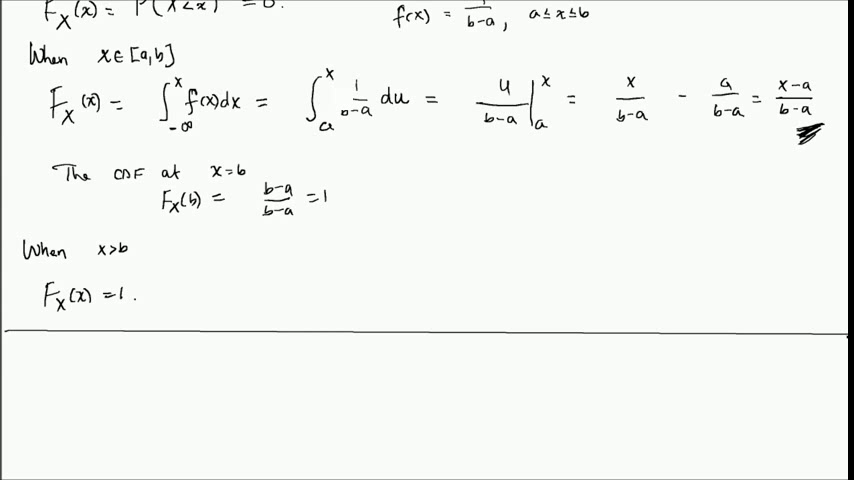 F_X(x) = P(X<x) = 0. f(x) = 1/(b-a), a ≤ x ≤ b
When x ∈ [a,b]
F_X(x) = ∫_{-∞}^{x} f(x)dx = ∫_{a}^{x} 1/(b-a) du = u/(b-a) |_{a}^{x} = x/(b-a) - a/(b-a) = (x-a)/(b-a)
The CDF at x=b
F_X(b) = (b-a)/(b-a) = 1
When x>b
F_X(x) = 1.